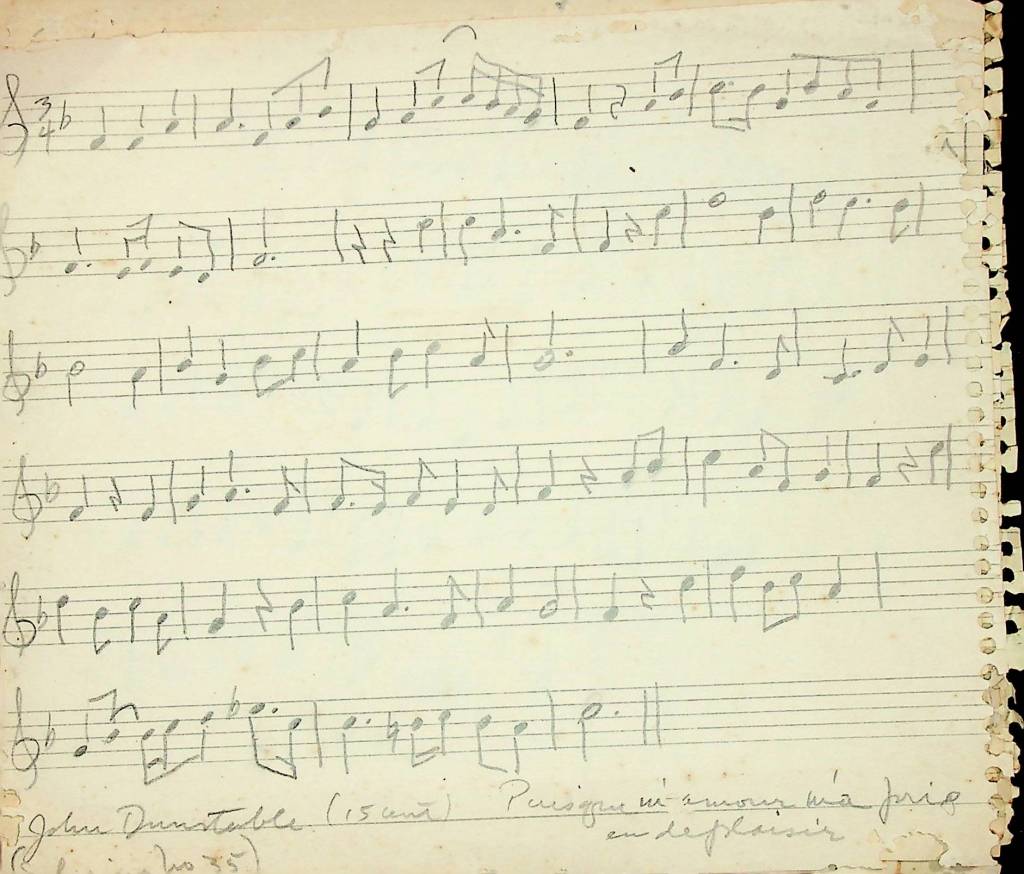 3
4
John Dunstable (15 cent) Puisque m'amour m'a pris
en deplaisir
no 35)